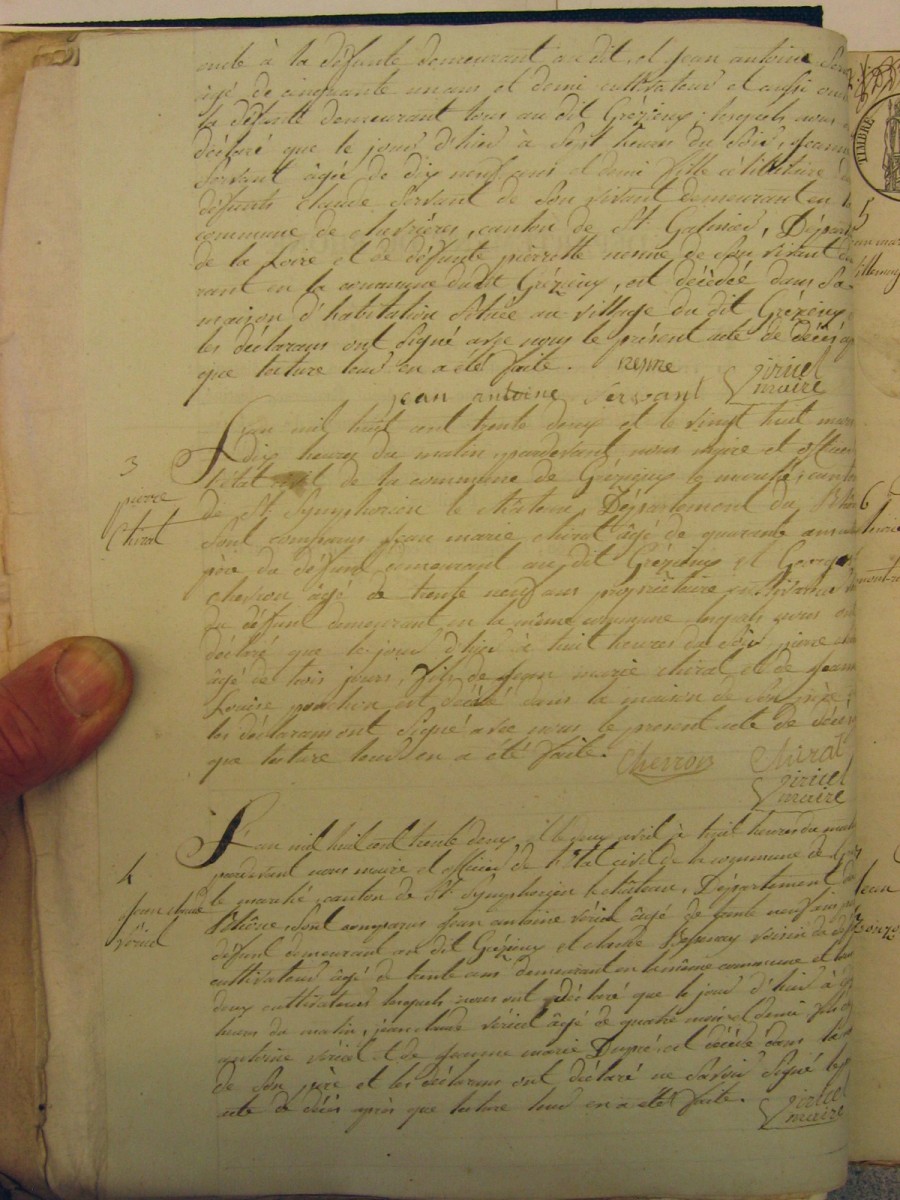 oncle à la défunte demeurant au dit, et jean antoine Ser
âgé de cinquante un ans et demi cultivateur et aussi oncle
la défunte demeurant tous au dit Grézieu, lesquels nous
déclaré que le jour d'hier à sept heures du soir, jeanne
servant âgée de dix neuf ans et demi fille célibataire de
défunts claude servant de son vivant demeurant en la
commune de chevrières, canton de St Galmier, Départ
de la Loire et de défunte pierrette nenne de son vivant demeu
rant en la commune du dit Grézieu, est décédée dans sa
maison d'habitation située au village du dit Grézieu
les déclarans ont signé avec nous le présent acte de décès ap
que lecture leur en a été faite.
jean antoine servant Viricel
maire
3
pierre
Chirat
L'an mil huit cent trente deux et le vingt huit mars
dix heures du matin pardevant nous maire et officier
l'état civil de la commune de Grézieux le marché, canton
de St Symphorien le château, Département du Rhône
sont comparus jean marie chirat âgé de quarante ans
père du défunt demeurant au dit Grézieux et George
cherron âgé de trente neuf ans propriétaire cultivateur
du défunt demeurant en la même commune lesquels nous ont
déclaré que le jour d'hier à huit heures du soir pierre chirat
âgé de trois jours, fils de jean marie chirat et de jeanne
Louise ponchon est décédé dans la maison de son père
les déclarans ont signé avec nous le present acte de décès
que lecture leur en a été faite. Cherron Chirat
Viricel
maire
4
jean claude
Véricel
L'an mil huit cent trente deux et le neuf avril à huit heures du matin
pardevant nous maire et officier de l'état civil de la commune de
le marché, canton de St Symphorien le château, Département du
Rhône sont comparus jean antoine véricel âgé de trente neuf ans père
défunt demeurant au dit Grézieux et claude Bessenay voisin du déf
cultivateur âgé de trente ans demeurant en la même commune et tous
deux cultivateurs lesquels nous ont déclaré que le jour d'hier à
heures du matin, jean claude véricel âgé de quatre mois et demi fils
antoine véricel et de jeanne marie Dupré, est décédé dans la
de son père et les déclarans ont déclaré ne savoir signé le
acte de décès après que lecture leur en a été faite. Viricel
maire
TIMBRE
5
jean mar
6
jean